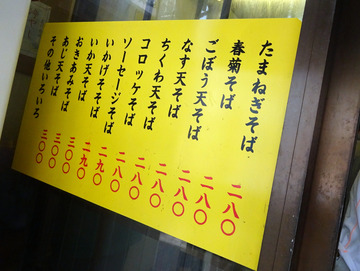 たまねぎそば 二八〇
春菊そば 二八〇
ごぼう天そば 二八〇
なす天そば 二八〇
ちくわ天そば 二八〇
コロッケそば 二八〇
ソーセージそば 二八〇
いかげそそば 二九〇
いか天そば 二九〇
おきあみそば 三〇〇
あじ天そば 三〇〇
その他いろいろ 三〇〇